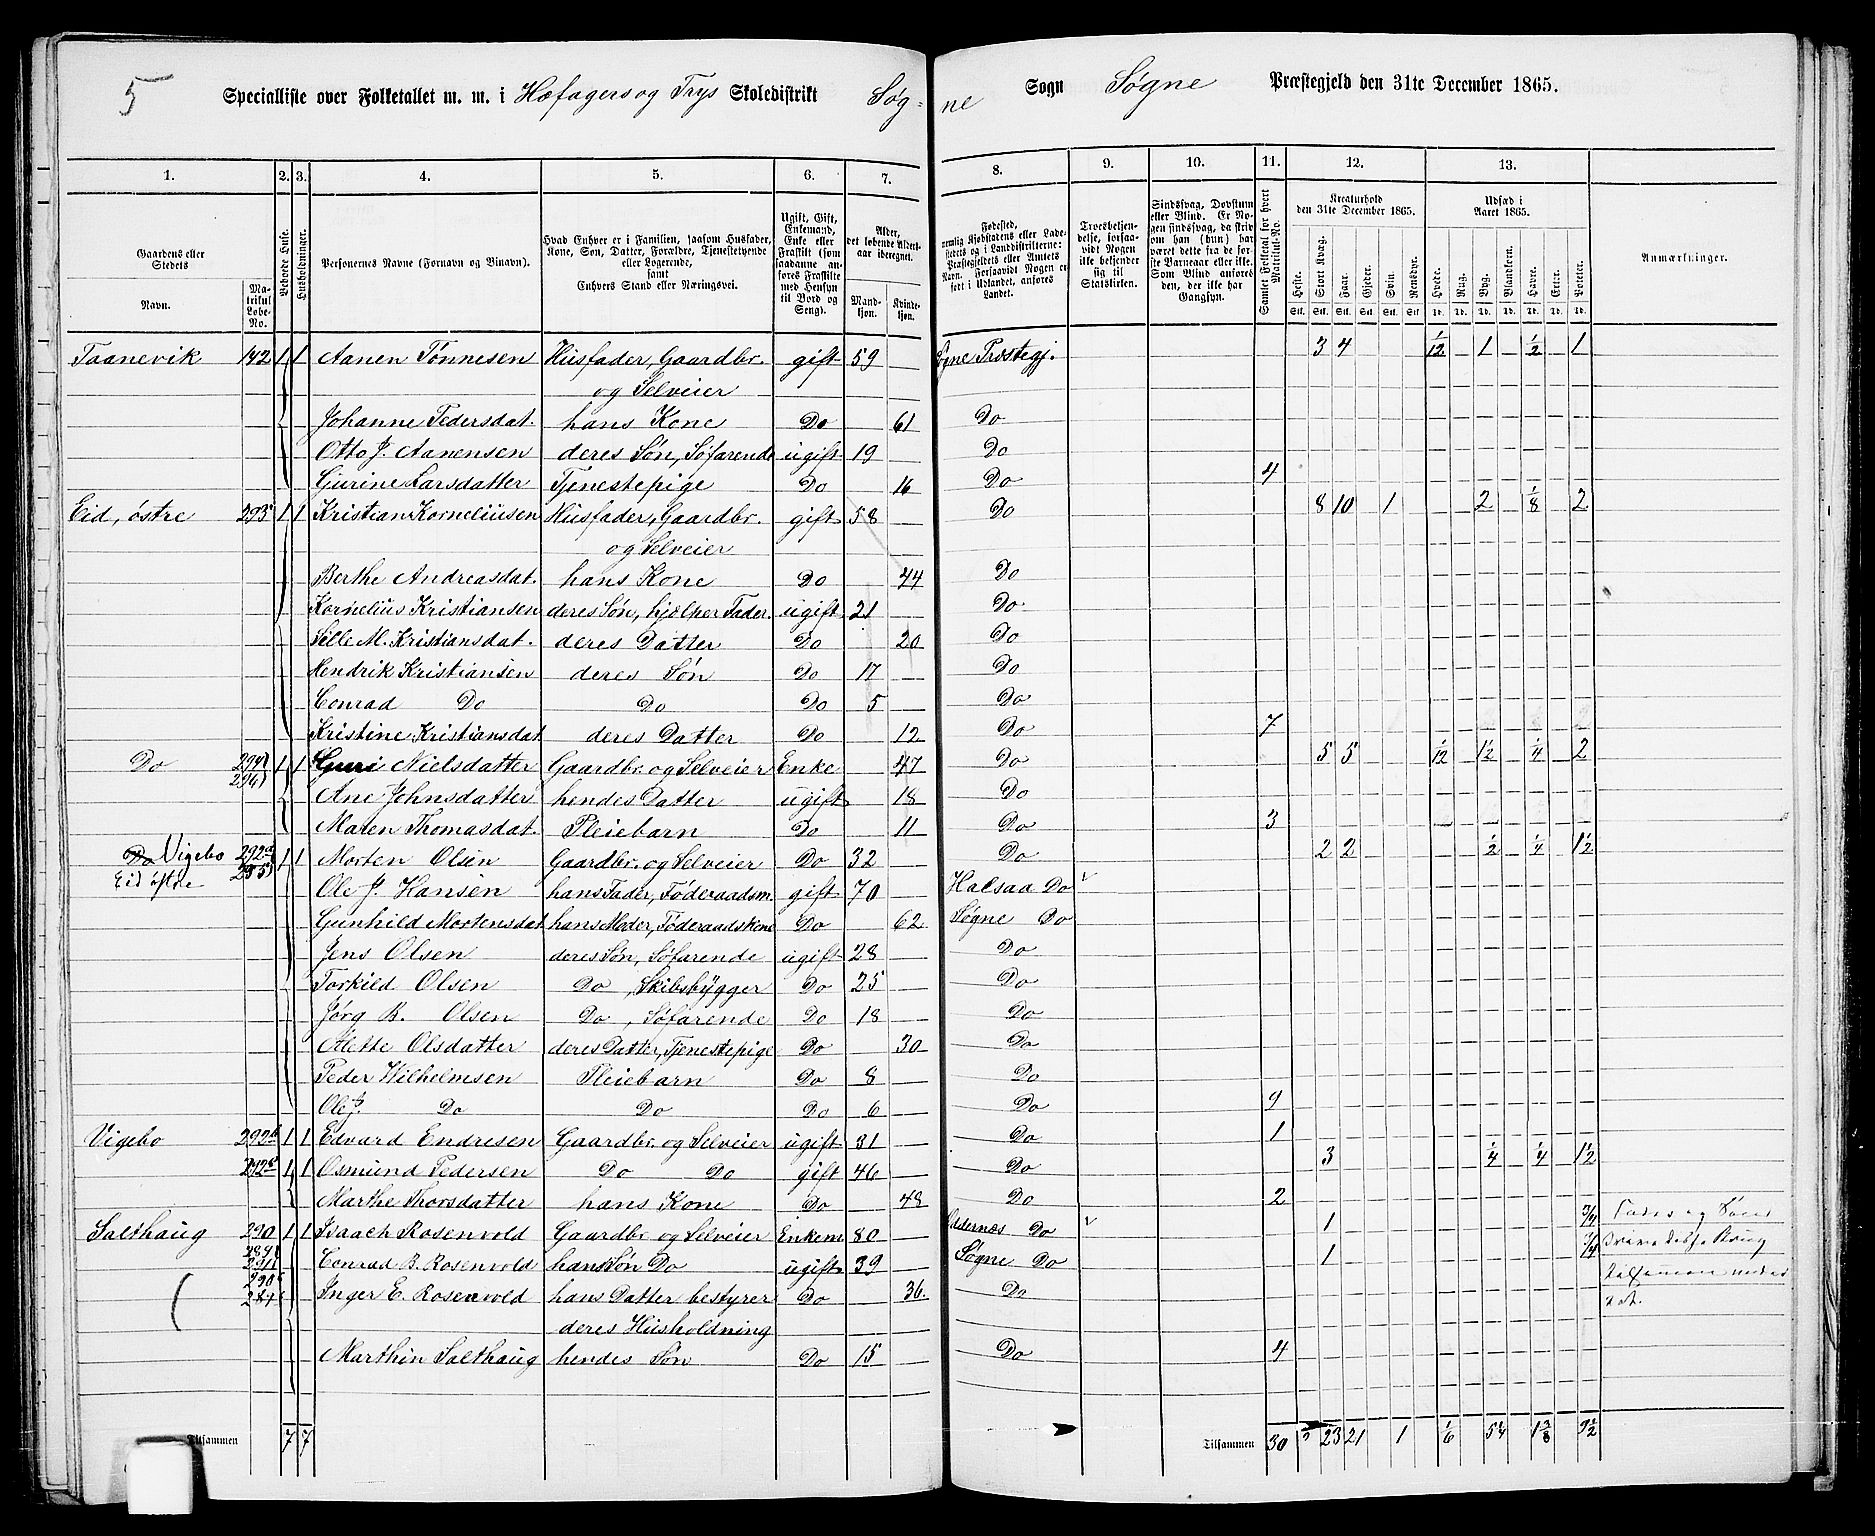 5 Specialliste over Folketallet m. m. i Hæfagers og Trys Skoledistrikt Søgne Sogn Søgne Præstegjeld den 31te December 1865.
1. 2. 3. 4. 5. 6. 7. 8. 9. 10. 11. 12. 13.
Gaardens eller Stedets Navn. Matrikul Løbe-No. Beboede Huse. Husholdninger. Personernes Navne (Fornavn og Binavn). Hvad Enhver er i Familien, saasom Husfader, Kone, Søn, Datter, Forældre, Tjenestetyende eller Logerende, samt Enhvers Stand eller Næringsvei. Ugift, Gift, Enkemand, Enke eller Fraskilt (som saadanne anføres Fraskilte med Hensyn til Bord og Seng). Alder, det løbende Aldersaar iberegnet. Mandkjøn. Kvindekjøn.
Fødested, nemlig Kjøbstadens eller Ladestedets og i Landdistrikterne: Præstegjeldets eller Amtets Navn. Forsaavidt Nogen er født i Udlandet, anføres Landet. Troesbekjendelse, forsaavidt Nogen ikke bekjender sig til Statskirken. Sindssvag, Døvstum eller Blind. Er Nogen sindssvag, da skrives om han (hun) har været dette fra de første Barneaar eller ikke. Som Blind anføres den, der ikke har Gangsyn. Samlet Folketal for hvert Matrikul-No. Kreaturhold den 31te December 1865. Heste. Stort Kvæg. Faar. Gjeder. Svin. Rensdyr. Udsæd i Aaret 1865. Hvede. Rug. Byg. Blandkorn. Havre. Erter. Poteter. Anmærkninger.
Taanevik 142 1 1 Aanen Tønnesen Husfader, Gaardbr. gift 59 Søgne Præstegj. 3 4 1/12 1 1/2 1
og Selveier
Johanne Pedersdat. hans Kone Do 61 Do
Otto J. Aanensen deres Søn, Søfarende ugift 19 Do
Gurine Larsdatter Tjenestepige Do 16 Do 4
Eid, østre 293 1 1 Kristian Korneliusen Husfader, Gaardbr. gift 58 Do 8 10 1 2 1/8 2
og Selveier
Berthe Andreasdat. hans Kone Do 44 Do
Kornelius Kristiansen deres Søn, hjælper Fader. ugift 21 Do
Sille M. Kristiansdat. deres Datter Do 20 Do
Hendrik Kristiansen deres Søn Do 17 Do
Conrad Do Do Do 5 Do
Kristine Kristiansdat deres Datter Do 12 Do 7
Do 294 1 1 Guri Nielsdatter Gaardbr. og Selveier Enke 47 Do 5 5 1/12 1/2 1/4 2
296 Ane Johnsdatter hendes Datter ugift 18 Do
Maren Thomasdat. Pleiebarn Do 11 Do 3
Do Vigebo 292a 1 1 Morten Olsen Gaardbr. og Selveier Do 32 Do 2 2 1/2 1/4 1 1/2
Eid østre 295 Ole J. Hansen hans Fader, Føderaadsm. gift 70 Halsaa Do
Gunhild Mortensdat hans Moder, Føderaadskone Do 62 Søgne Do
Jens Olsen deres Søn, Søfarende ugift 28 Do
Torkild Olsen Do, Skibsbygger Do 25 Do
Jørg B. Olsen Do, Søfarende Do 18 Do
Alette Olsdatter deres Datter, Tjenestepige Do 30 Do
Peder Wilhelmsen Pleiebarn Do 8 Do
Ole J. Do Do Do 6 Do 9
Vigebo 292b 1 1 Edvard Endresen Gaardbr. og Selveier ugift 31 Do 1
292c 1 1 Osmund Pedersen Do Do gift 46 Do 3 1/4 1/4 1 1/2
Marthe Thorsdatter hans Kone Do 48 Do 2
Salthaug 290 1 1 Isaach Rosenvold Gaardbr. og Selveier Enkem 80 Oddernæs Do 1 3/4
289 291 Conrad B. Rosenvold hans Søn Do ugift 39 Søgne Do 1 3/4
Inger E. Rosenvold hans Datter bestyrer Do 36. Do
deres Husholdning
Marthin Salthaug hendes Søn Do 15 Do 4
Tilsammen 7 7 Tilsammen 30 23 21 1 1/6